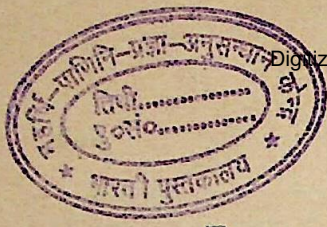 महर्षि-पाणिनि-प्रज्ञा-अनुसन्धान केन्द्र
तिथी..................
पु०सं०..................
* भारती पुस्तकालय *
Digitiz